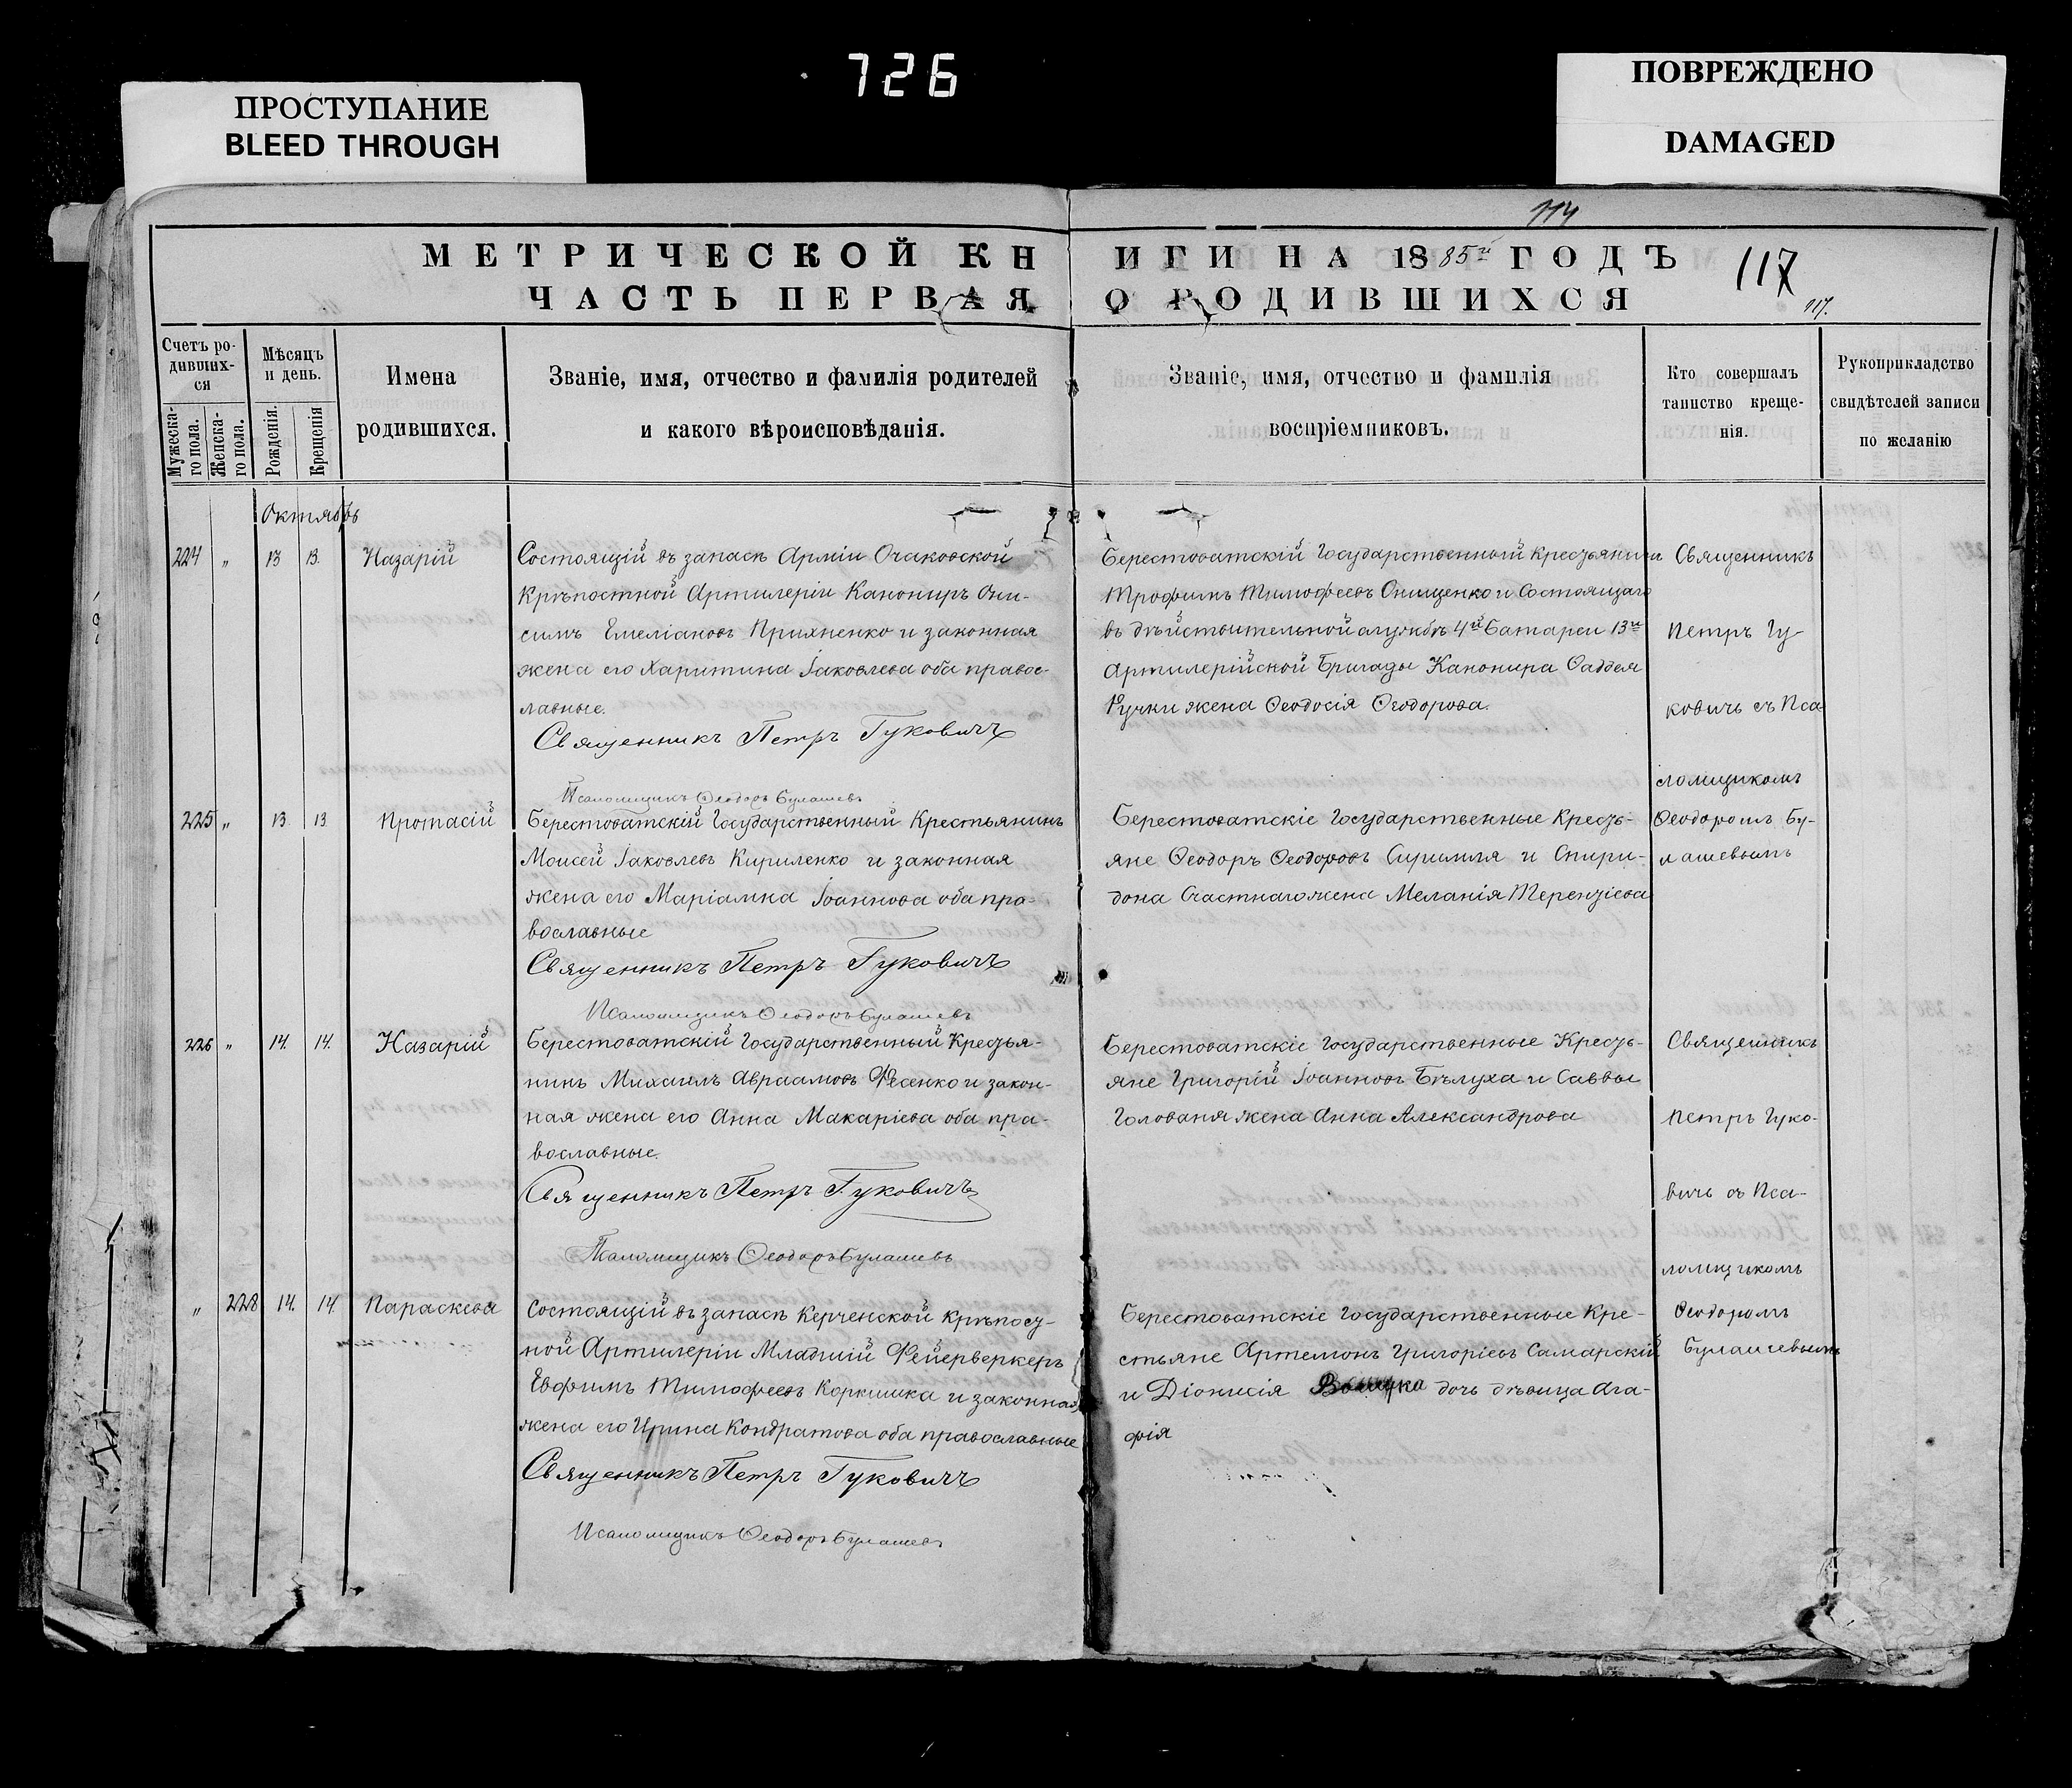 726
ПРОСТУПАНИЕ
BLEED THROUGH
ПОВРЕЖДЕНО
DAMAGED
114
МЕТРИЧЕСКОЙ КНИГИ НА 1885й ГОДЪ
117
ЧАСТЬ ПЕРВАЯ О РОДИВШИХСЯ
117.
Счетъ ро-
дивших-
ся
Мужеска-
го пола.
Женска-
го пола.
Мѣсяцъ
и день.
Рожденія.
Крещенія
Имена
родившихся.
Званіе, имя, отчество и фамилія родителей
и какого вѣроисповѣданія.
Званіе, имя, отчество и фамилія
воспріемниковъ.
Кто совершалъ
таинство креще-
нія.
Рукоприкладство
свидѣтелей записи
по желанію
Октябрь
224 „ 13 13. Назарій
Состоящій въ запасѣ Арміи Очаковской
Крѣпостной Артилеріи Канониръ Они-
симъ Емеліановъ Прихненко и законная
жена его Харитина Іаковлева оба правос-
лавные.
Священникъ Петръ Гуковичъ
Псаломщикъ Ѳеодоръ Булашевъ
Берестоватскій Государственный Крестьянинъ
Трофимъ Тимофеевъ Онищенко и Состоящаго
въ дѣйствительной службѣ 4й Батареи 13й
Артилерійской Бригады Канонира Фаддея
Ручки жена Ѳеодосія Ѳеодорова.
Священникъ
Петръ Гу-
ковичъ съ Пса
ломщикомъ
Ѳеодоромъ Бу-
лашевымъ
225 „ 13 13 Протасій
Берестоватскій Государственный Крестьянинъ
Моисей Іаковлевъ Кириленко и законная
жена его Маріамна Іоаннова оба пра-
вославные
Священникъ Петръ Гуковичъ
Псаломщикъ Ѳеодоръ Булашевъ
Берестоватскіе Государственные Кресть-
яне Ѳеодоръ Ѳеодоровъ и Спири-
дона Счастнаго жена Меланія Терентіева
226 „ 14. 14. Назарій
Берестоватскій Государственный Крестья-
нинъ Михаилъ Авраамовъ Фесенко и закон-
ная жена его Анна Макаріева оба пра-
вославные.
Священникъ Петръ Гуковичъ
Псаломщикъ Ѳеодоръ Булашевъ
Берестоватскіе Государственные Кресть-
яне Григорій Іоанновъ Бѣлуха и Саввы
Голованя жена Анна Александрова
Священникъ
Петръ Гуко-
вичъ съ Пса-
ломщикомъ
Ѳеодоромъ
Булашевымъ
„ 228 14. 14. Параскева
Состоящій въ запасѣ Керченской Крѣпост-
ной Артилеріи Младшій Фейерверкеръ
Евфимъ Тимофеевъ и законная
жена его Ирина Кондратова оба православные
Священникъ Петръ Гуковичъ
Псаломщикъ Ѳеодоръ Булашевъ
Берестоватскіе Государственные Кре-
стьяне Артемонъ Григоріевъ Самарскій
и Діонисія дочь дѣвица Ага-
фія